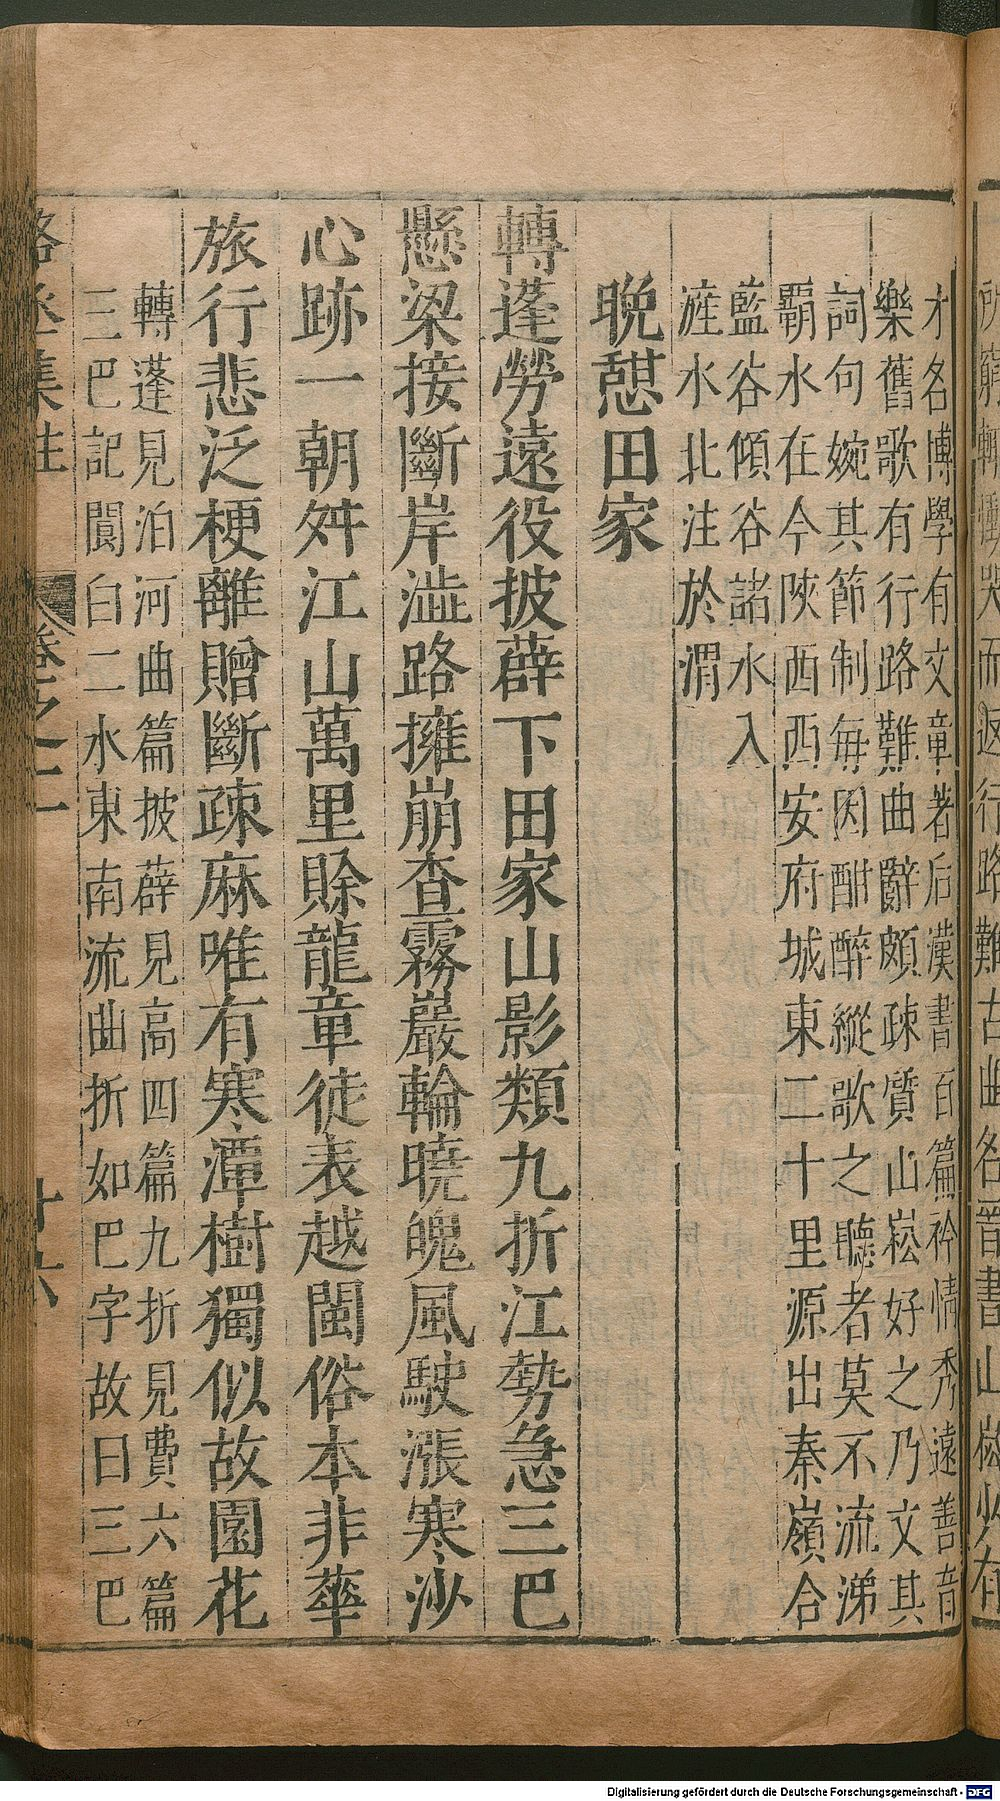 才名博學有文章著后漢書百篇衿情秀遠善音
樂舊歌有行路難曲辭頗疎質山崧好之乃文其
詞句婉其節制每因酣醉縱歌之聽者莫不流涕
覇水在今陝西西安府城東二十里源出秦嶺合
藍谷傾谷諸水入
滻水北注於渭
晚憇田家
轉蓬勞遠役披薜下田家山影類九折江勢急三巴
懸梁接斷岸澁路擁崩查霧巖輪曉魄風駛漲寒沙
心跡一朝舛江山萬里賒龍章徒表越閩俗本非華
旅行悲泛梗離贈斷疎麻唯有寒潭樹獨似故園花
轉蓬見泊河曲篇披薜見高四篇九折見費六篇
三巴記閬白二水東南流曲折如巴字故曰三巴
駱丞集註
卷之二
十六
而返行路難古曲名晉書山崧少有
Digitalisierung gefördert durch die Deutsche Forschungsgemeinschaft - DFG